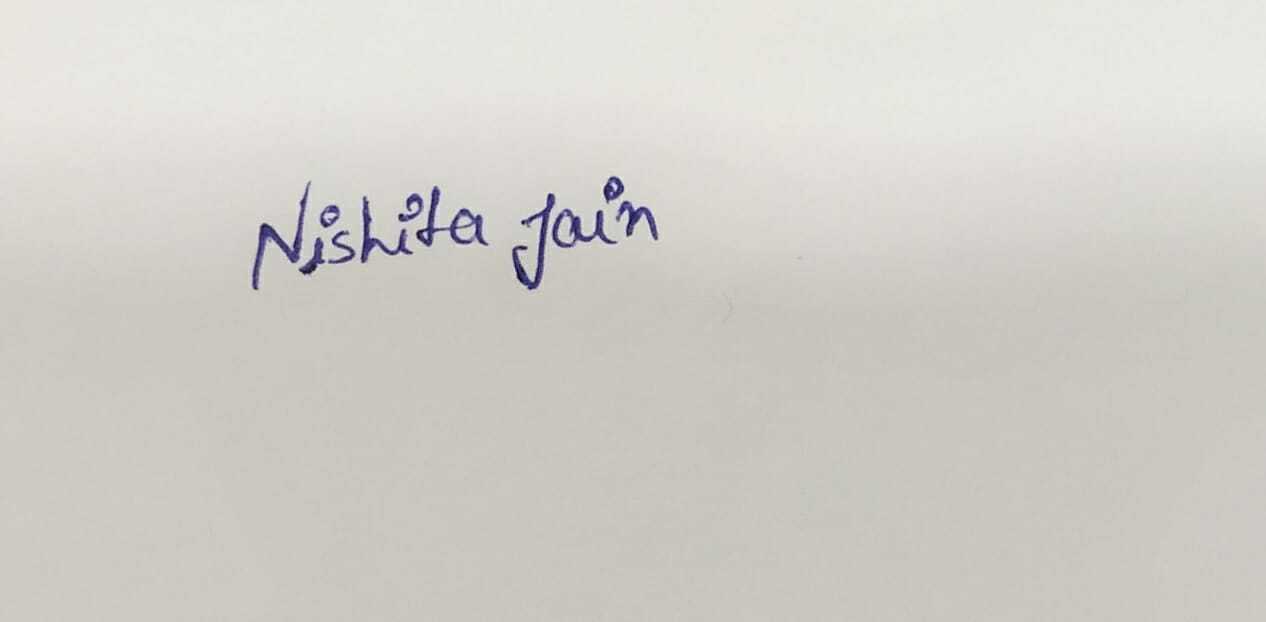 Nishita Jain